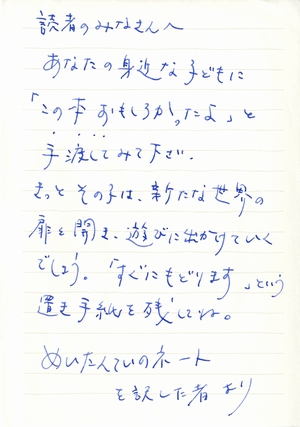 読者のみなさんへ
あなたの身近な子どもに
「この本おもしろかったよ」と
手渡してみて下さい.
きっとその子は、新たな世界の
扉を開き、遊びに出かけていく
でしょう。「すぐにもどります」という
置き手紙を残してね。
めいたんていのネート
を訳した者より